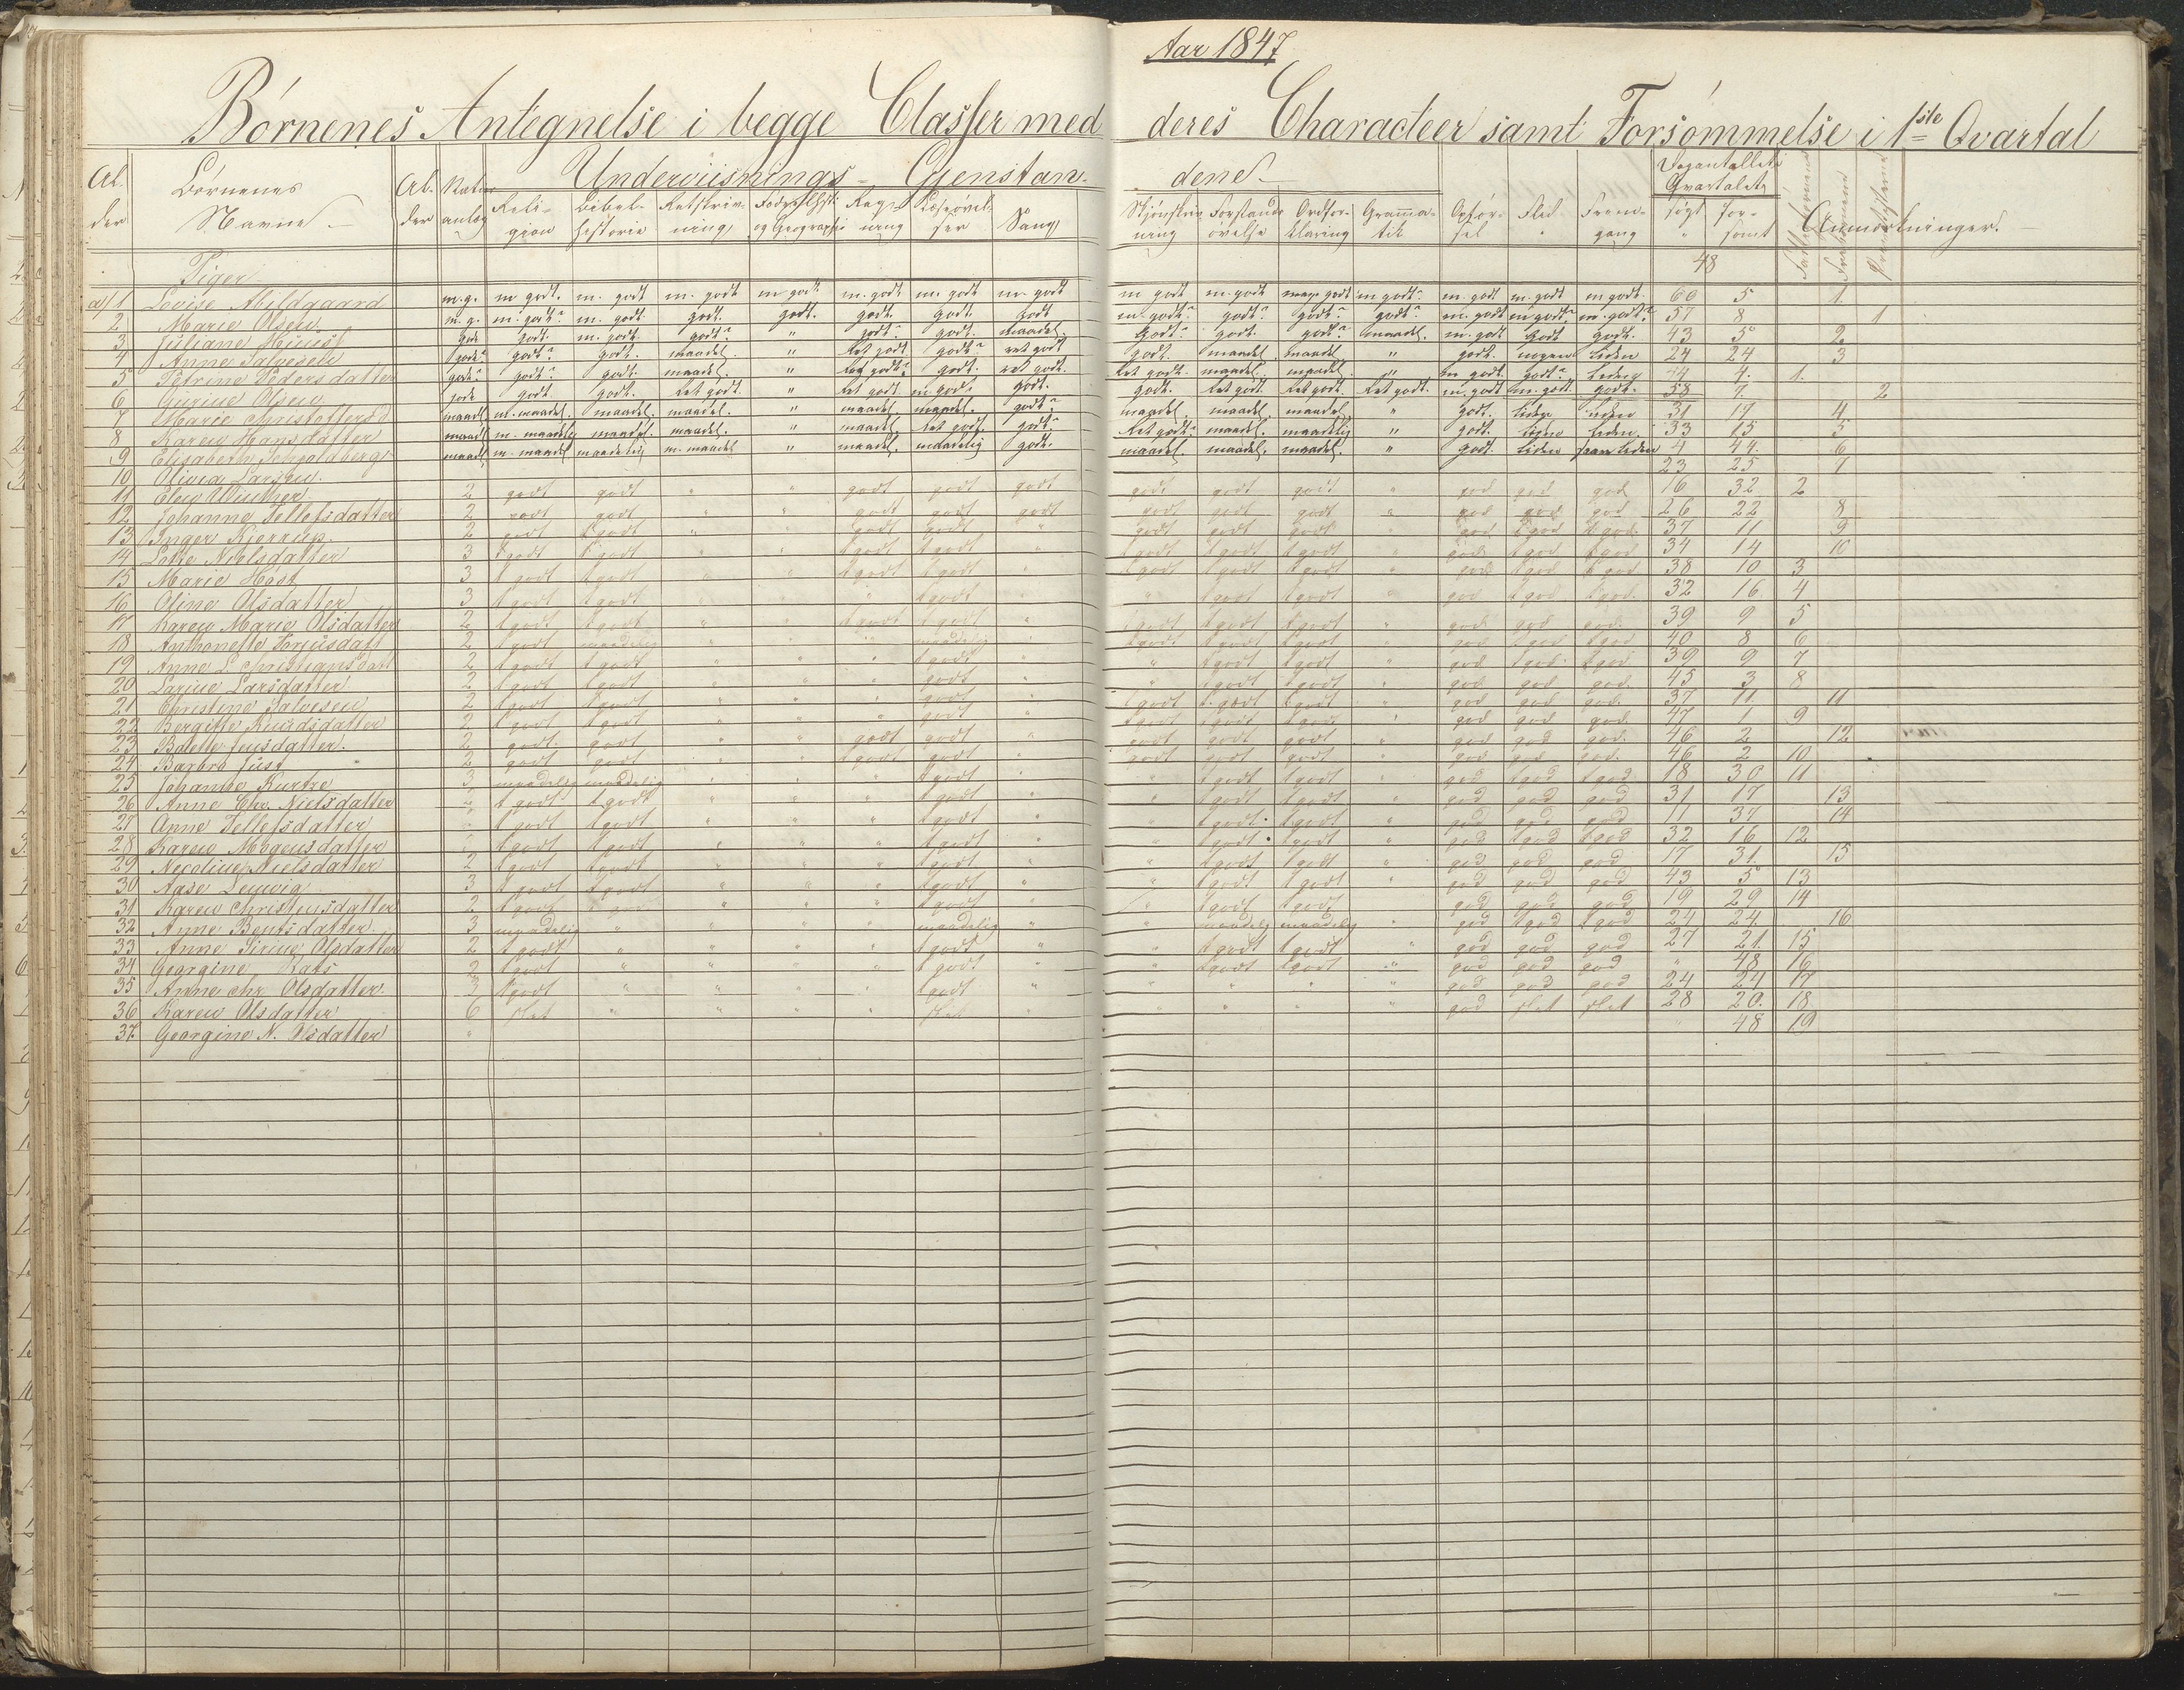 Aar 1847
Børnenes Antegnelse i begge Classer med deres Characteer samt Forsømmelse i 1ste Qvartal
Underviisnings- Gjenstandene.
Børnenes Navne
Al- der
Natur anlæg
Reli- gion
Bibel- historie
Retskriv- ning
og Geographi
Reg- ning
Læseøvel- ser
Sang
Skjønskriv ning
Forstands øvelse
Ordfor- klaring
Gramma- tik
Opfør- sel
Flid
Frem- gang
Dagantallet i Qvartalet
søgt
for- sømt
Anmærkninger.
Piger
48
a/ 1 Lovise Abildgaard m.g. m godt. m. godt m. godt m godt m. godt m. godt m. godt m godt m. godt meget godt m godt m. godt m. godt m godt. 60 5 1.
2 Marie Olsen m. g. m. godt m. godt. godt. godt. godt. godt. godt m. godt godt godt godt m. godt m godt m. godt 57 8 1
3 Juliane godt godt. m. godt. godt " godt godt. maadel. Godt godt. godt maadel. m. godt Godt godt. 43 5 2
4 Anne Salvesen godt godt godt. maadel. " Ret godt godt ret godt godt. maadel maadel " godt. nogen liden 24 24 3
5 Petrine Pedersdatter godt godt godt. maadel. " godt godt. ret godt. Ret godt. maadel. maadel. " m godt. godt 44 4. 1.
6 Gurine Olsen godt godt godt. Ret godt. " Ret godt m. godt godt. godt. Ret godt. Ret godt. Ret godt. m. godt m. godt godt. 58 7. 2
7 Marie Christoffersd. maadel m. maadel. maadel. maadel. " maadel. maadel. godt maadel. maadel. maadel. " godt. liden liden 31 17 4
8 Karen Hansdatter maadl m. maadelig maadel. maadel. " maadel. Ret godt. godt Ret godt. maadel. maadelig " godt. liden. 33 15 5
9 Elisabeth Schjoldberg maadl m. maadel maadelig m. maadel " maadel. maadelig godt. maadel. maadel. maadel. " godt. liden liden 4 44. 6
10 Olivia Larsen. 23 25 7
11 Elen Winther 2 godt godt " " godt godt godt godt godt godt " god god god 16 32 2
12 Johanne Tellefsdatter 2 godt godt " " godt godt godt godt godt godt " god god god 26 22 8
13 Inger Kjerrup. 2 godt t godt " " godt godt " godt godt godt " god t god t god 37 11 9
14 Lotte Nielsdatter 3 t godt t godt " " t godt t godt " t godt t godt t godt " god t god t god 34 14 10
15 Marie Høst 3 t godt t godt " " t godt t godt " t godt t godt t godt " god t god t god 38 10 3
16 Oline Olsdatter 3 t godt t godt " " " t godt " " t godt t godt " god t god t god. 32 16 4
17 Karen Marie Olsdatter 2 t godt t godt " " t godt t godt " t godt t godt t godt " god god god. 39 9 5
18 Anthonette 2 t godt maadelig " " " maadelig " t godt t godt t godt " god god t god 40 8 6
19 Anne L. Christiansdatt 2 t godt t godt " " " t godt " " t godt t godt " god t god t god 39 9 7
20 Larine Larsdatter 2 t godt t godt " " " godt " " t godt t godt " god god god. 45 3 8
21 Christine Salvesen 2 t godt t godt " " " godt " t godt t. godt t godt " god god god. 37 11. 11
22 Bergitte Knudsdatter 2 t godt t godt " " " godt " t godt t godt t godt " god god god. 47 1 9
23 Jensdatter. 2 godt. godt " " godt godt " godt godt godt " god god god. 46 2 12
24 Barbro Just 2 godt godt " " t godt godt " godt godt godt " god god god. 46 2 10
25 Johanne 3 maadelig maadelig " " " t godt " " t godt t godt " god t god t god 18 30 11
26 Anne Chr. Nielsdatter t godt t godt " " " t godt " " t godt t godt " god god god 31 17 13
27 Anne Tellefsdatter t godt t godt " " " t godt " " t godt. t godt " god god god 11 37 14
28 Karen Mogensdatter t godt t godt " " " t godt " " t godt t godt " god t god t god 32 16 12
29 Nicoline Nielsdatter 2 t godt t godt " " " t godt " " t godt t godt " god god god 17 31. 15
30 Aase 3 t godt t godt " " " t godt " " t godt t godt " god god god 43 5 13
31 Karen Christensdatter 2 t godt " " " t godt " " t godt t godt god god god 19 29 14
32 Anne Bentsdatter. 3 maadelig " " " " maadelig " " maadelig maadelig " god t god t god 24 24 16
33 Anne Olsdatter 2 t godt " " " " t godt " " t godt t godt " god god god 27 21. 15
34 Georgine 2 t godt " " " " t godt " " t godt t godt " god god god " 48 16
35 Anne chr. Olsdatter. 3 t godt " " " " t godt " " " " " god god god 24 24 17
36 Karen Olsdatter 6 slet " " " " slet " " " " " god slet slet 28 20. 18
37. Georgine N. Olsdatter " 48 19